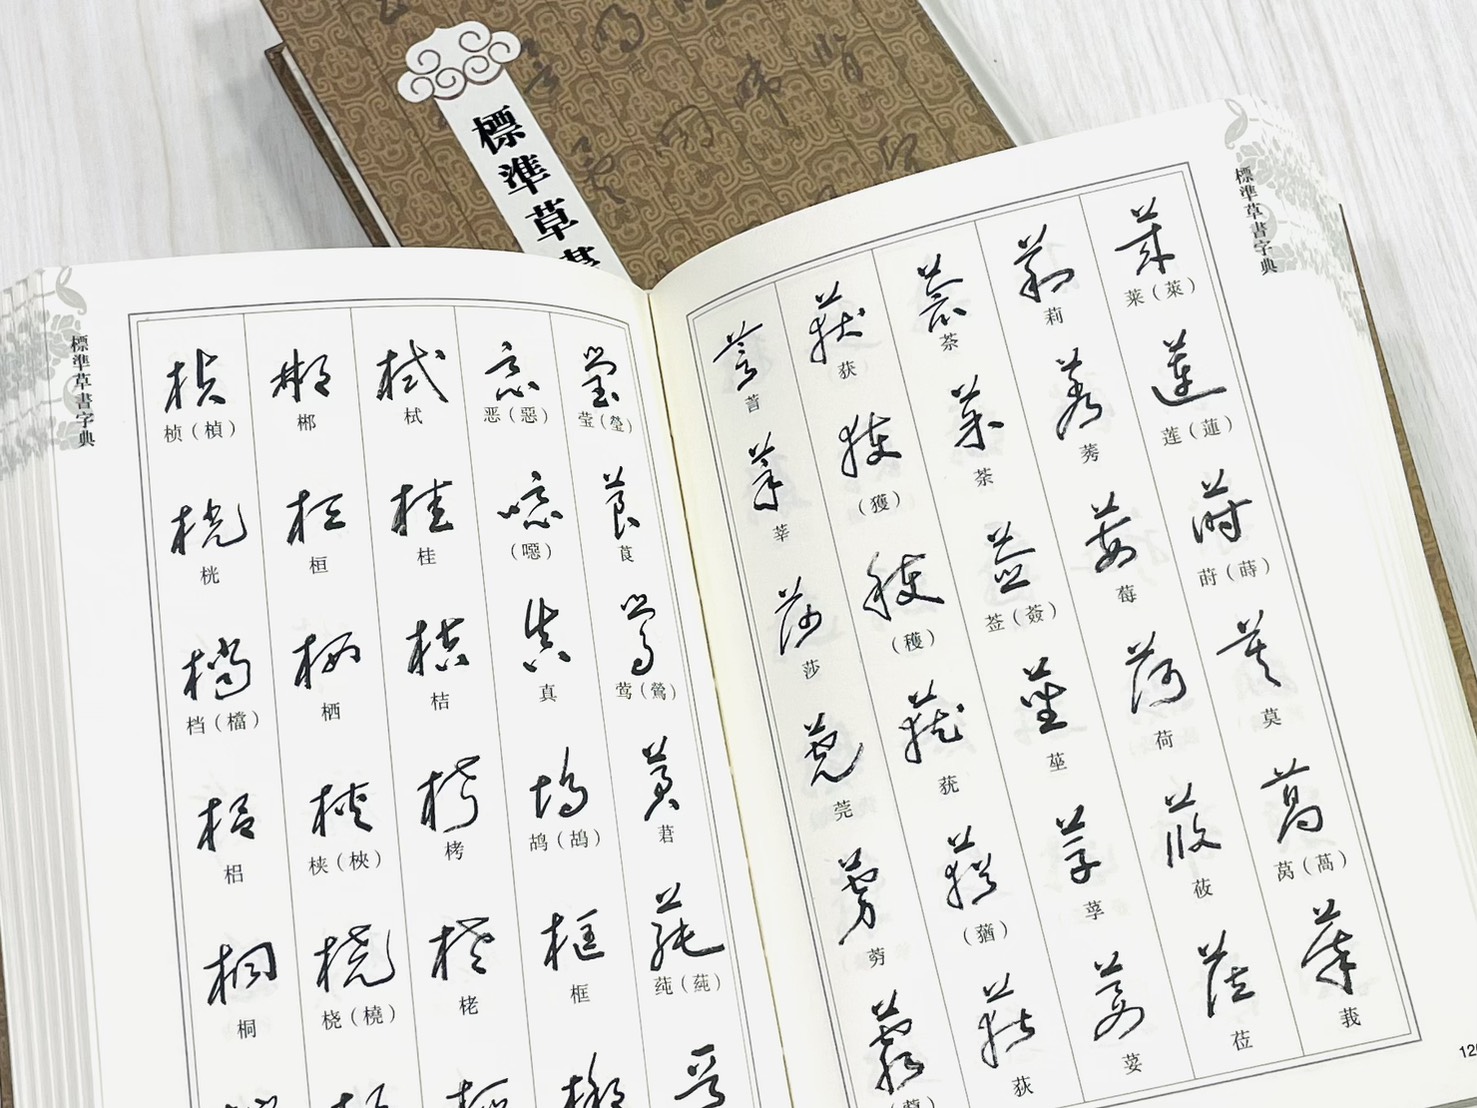 標準草書
標準草書字典
莱（萊） 莲（蓮） 莳（蒔） 莫 莴（萵） 莪
莉 莠 莓 荷 莜 莅
茶 荼 莶（薟） 莝 莩 荽
莰 （獲） （穫） 莸 （蕕） 荻
莟 莘 莎 莞 莮
125
標準草書字典
莹（瑩） 莨 莺（鶯） 莙 莼（蒓）
恶（惡） （噁） 真 鸪（鴣） 框
栻 桂 桔 栲 栳
郴 桓 栖 梜（梜） 桡（橈）
桢（楨） 桄 档（檔） 梠 桐